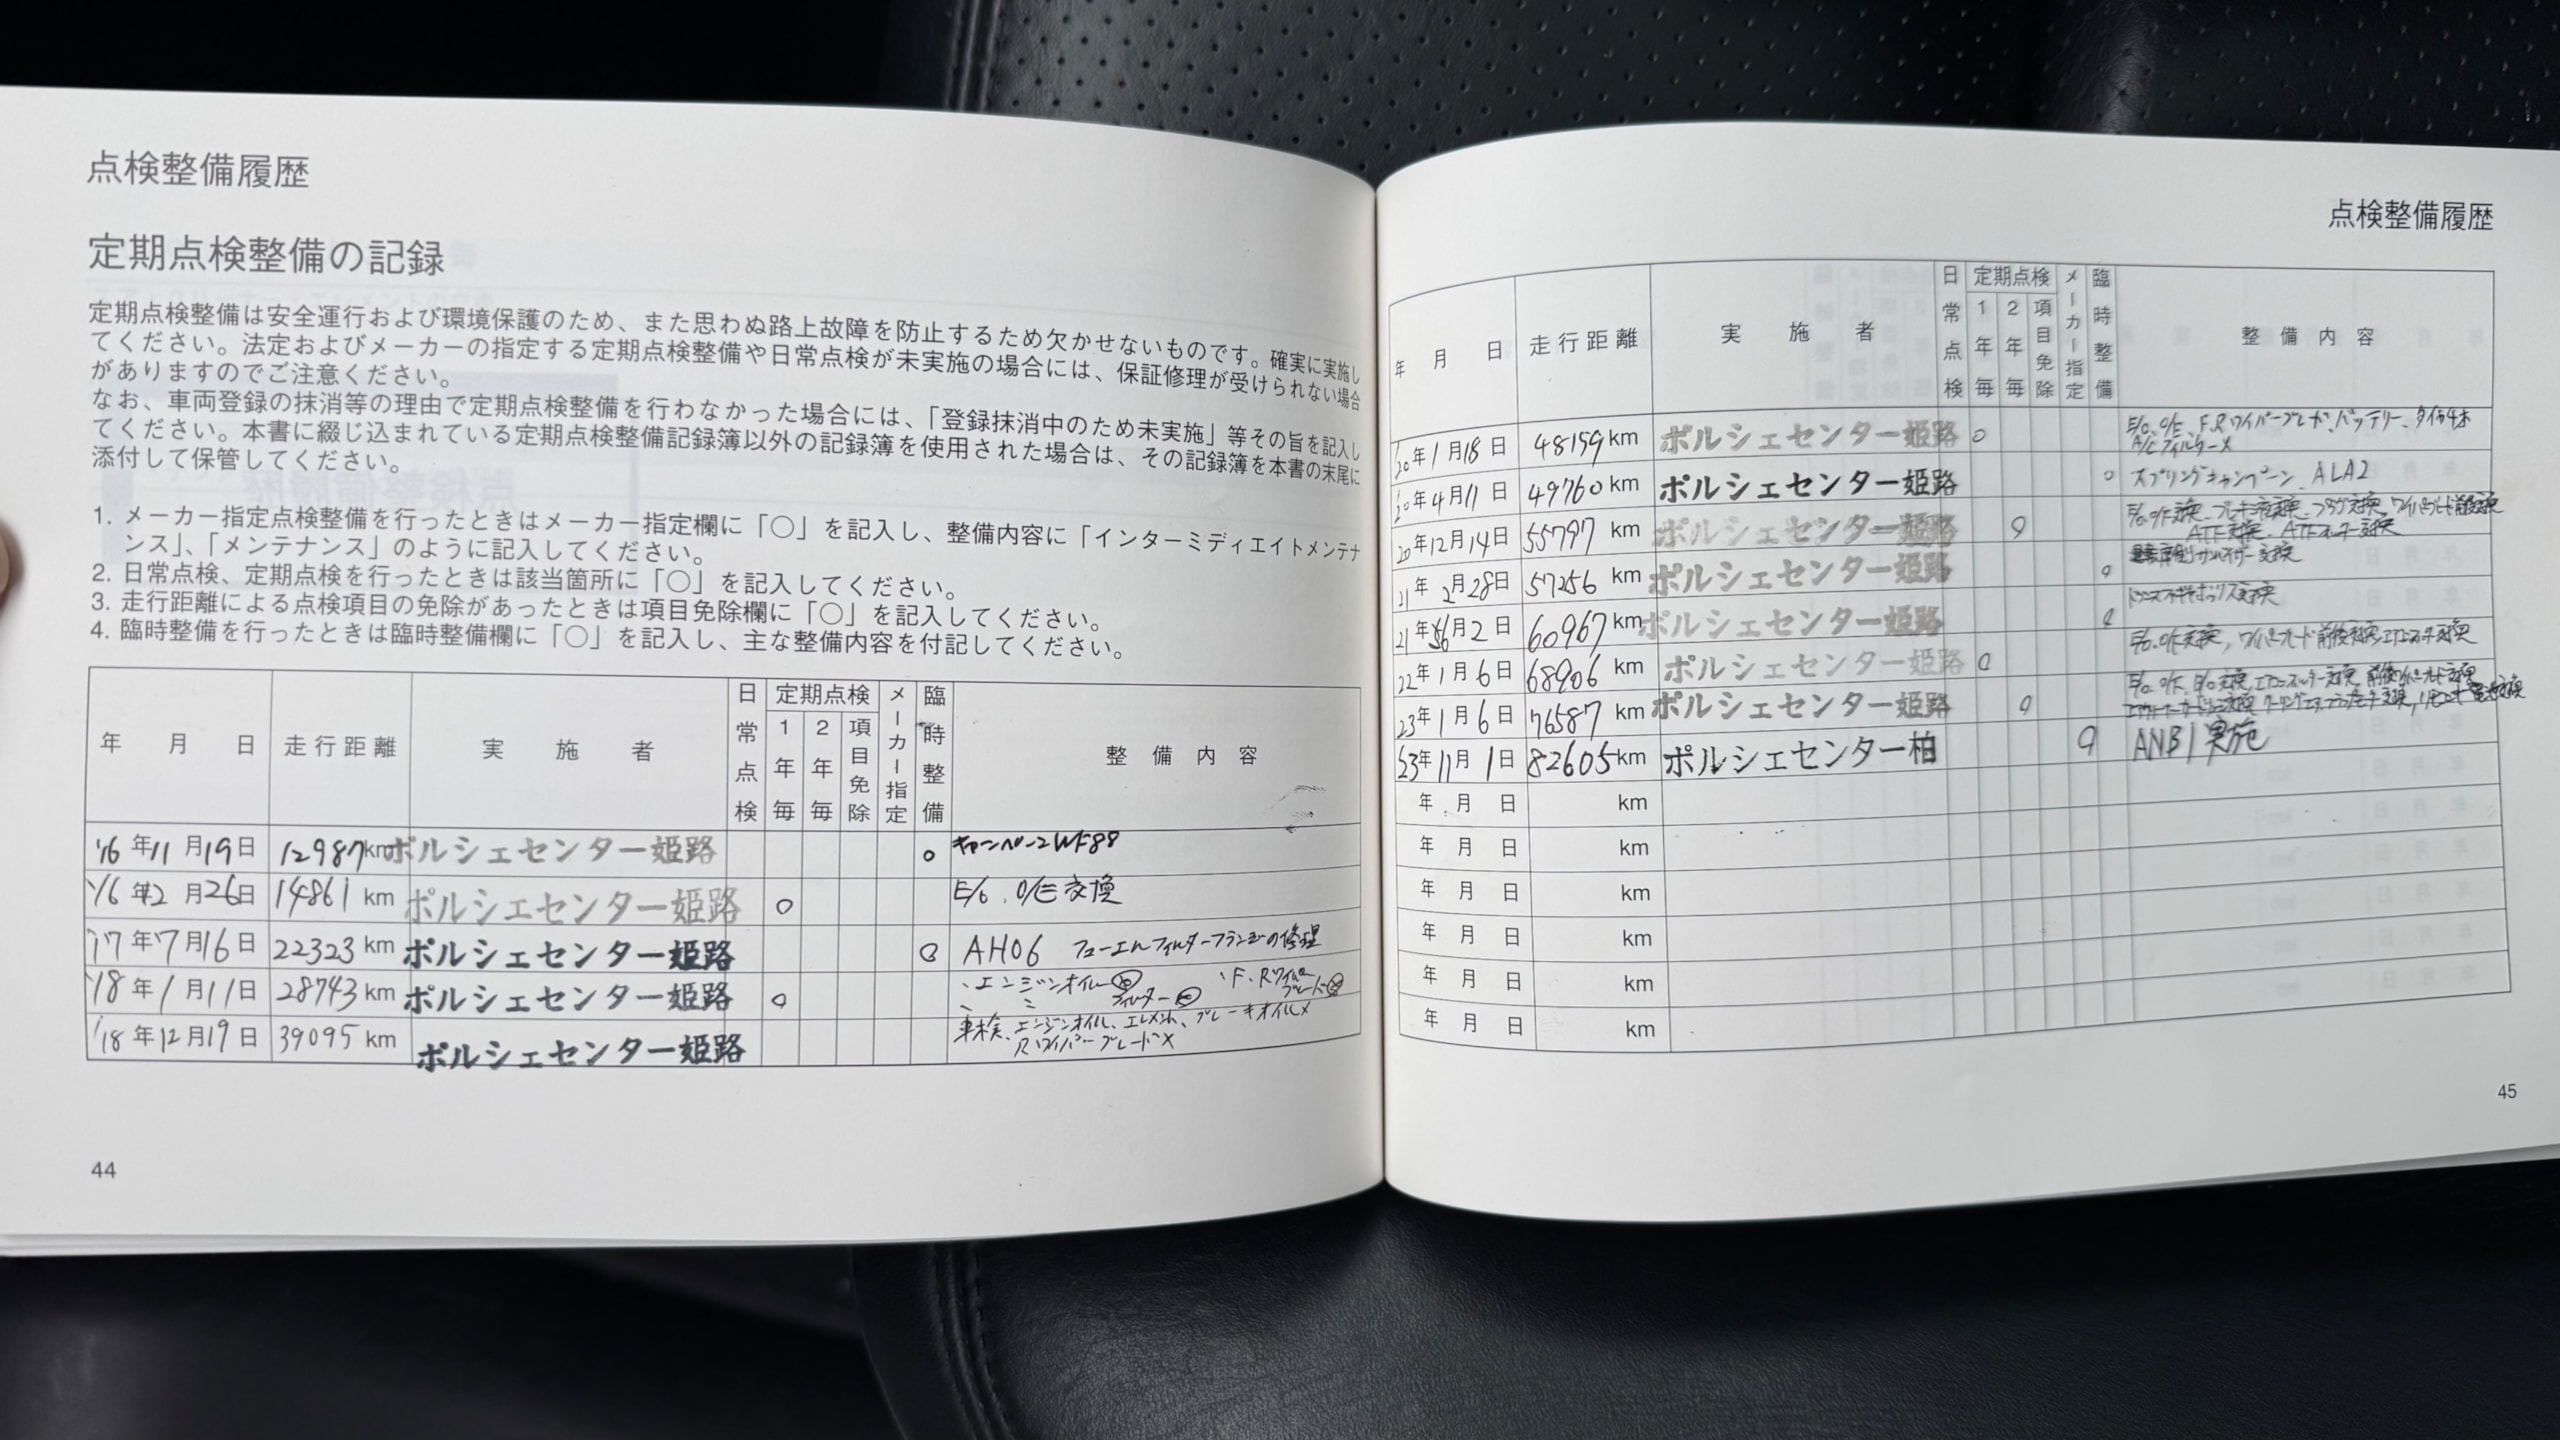 点検整備履歴
定期点検整備の記録
定期点検整備は安全運行および環境保護のため、また思わぬ路上故障を防止するため欠かせないものです。確実に実施し
てください。法定およびメーカーの指定する定期点検整備や日常点検が未実施の場合には、保証修理が受けられない場合
がありますのでご注意ください。
なお、車両登録の抹消等の理由で定期点検整備を行わなかった場合には、「登録抹消中のため未実施」等その旨を記入し
てください。本書に綴じ込まれている定期点検整備記録簿以外の記録簿を使用された場合は、その記録簿を本書の末尾に
添付して保管してください。
1. メーカー指定点検整備を行ったときはメーカー指定欄に「○」を記入し、整備内容に「インターミディエイトメンテナ
ンス」、「メンテナンス」のように記入してください。
2. 日常点検、定期点検を行ったときは該当箇所に「○」を記入してください。
3. 走行距離による点検項目の免除があったときは項目免除欄に「○」を記入してください。
4. 臨時整備を行ったときは臨時整備欄に「○」を記入し、主な整備内容を付記してください。
年 月 日 走行距離 実施者 日常点検 定期点検 1年毎 2年毎 項目免除 メーカー指定 臨時整備 整備内容
'16年11月19日 12987km ポルシェセンター姫路 ○ キャンペーンWF88
'16年12月26日 14861km ポルシェセンター姫路 ○ E/o、O/E交換
'17年7月16日 22323km ポルシェセンター姫路 ○ AH06 フューエルフィルターフランジの修理
'18年1月11日 28743km ポルシェセンター姫路 ○ エンジンオイル フィルター F.Rワイパーブレード
'18年12月19日 39095km ポルシェセンター姫路 車検、エンジンオイル、エレメント、ブレーキオイル×
Rワイパーブレード×
44
点検整備履歴
年 月 日 走行距離 実施者 日常点検 定期点検 1年毎 2年毎 項目免除 メーカー指定 臨時整備 整備内容
'20年1月18日 48159km ポルシェセンター姫路 ○ E/o、O/E、F.Rワイパーブレード、バッテリー、タイヤ4本
A/Cフィルター×
'20年4月11日 49760km ポルシェセンター姫路 ○ スプリングキャンペーン、ALA2
'20年12月14日 55797km ポルシェセンター姫路 ○ E/o、O/E交換、ブレーキ液交換、プラグ交換、ワイパーブレード前後交換
ATF交換、ATFフィルター交換
'21年2月28日 57256km ポルシェセンター姫路 ○ サンバイザー交換
'21年6月2日 60967km ポルシェセンター姫路 ○ トランスファーギヤボックス交換
'22年1月6日 68906km ポルシェセンター姫路 ○ E/o、O/E交換、ワイパーブレード前後交換、エアコンフィルター交換
'23年1月6日 76587km ポルシェセンター姫路 ○ E/o、O/E、B/o交換、エアコンフィルター交換、前後ワイパーブレード交換
'23年11月1日 82605km ポルシェセンター柏 ○ ANB1実施
年 月 日 km
年 月 日 km
年 月 日 km
年 月 日 km
年 月 日 km
年 月 日 km
45